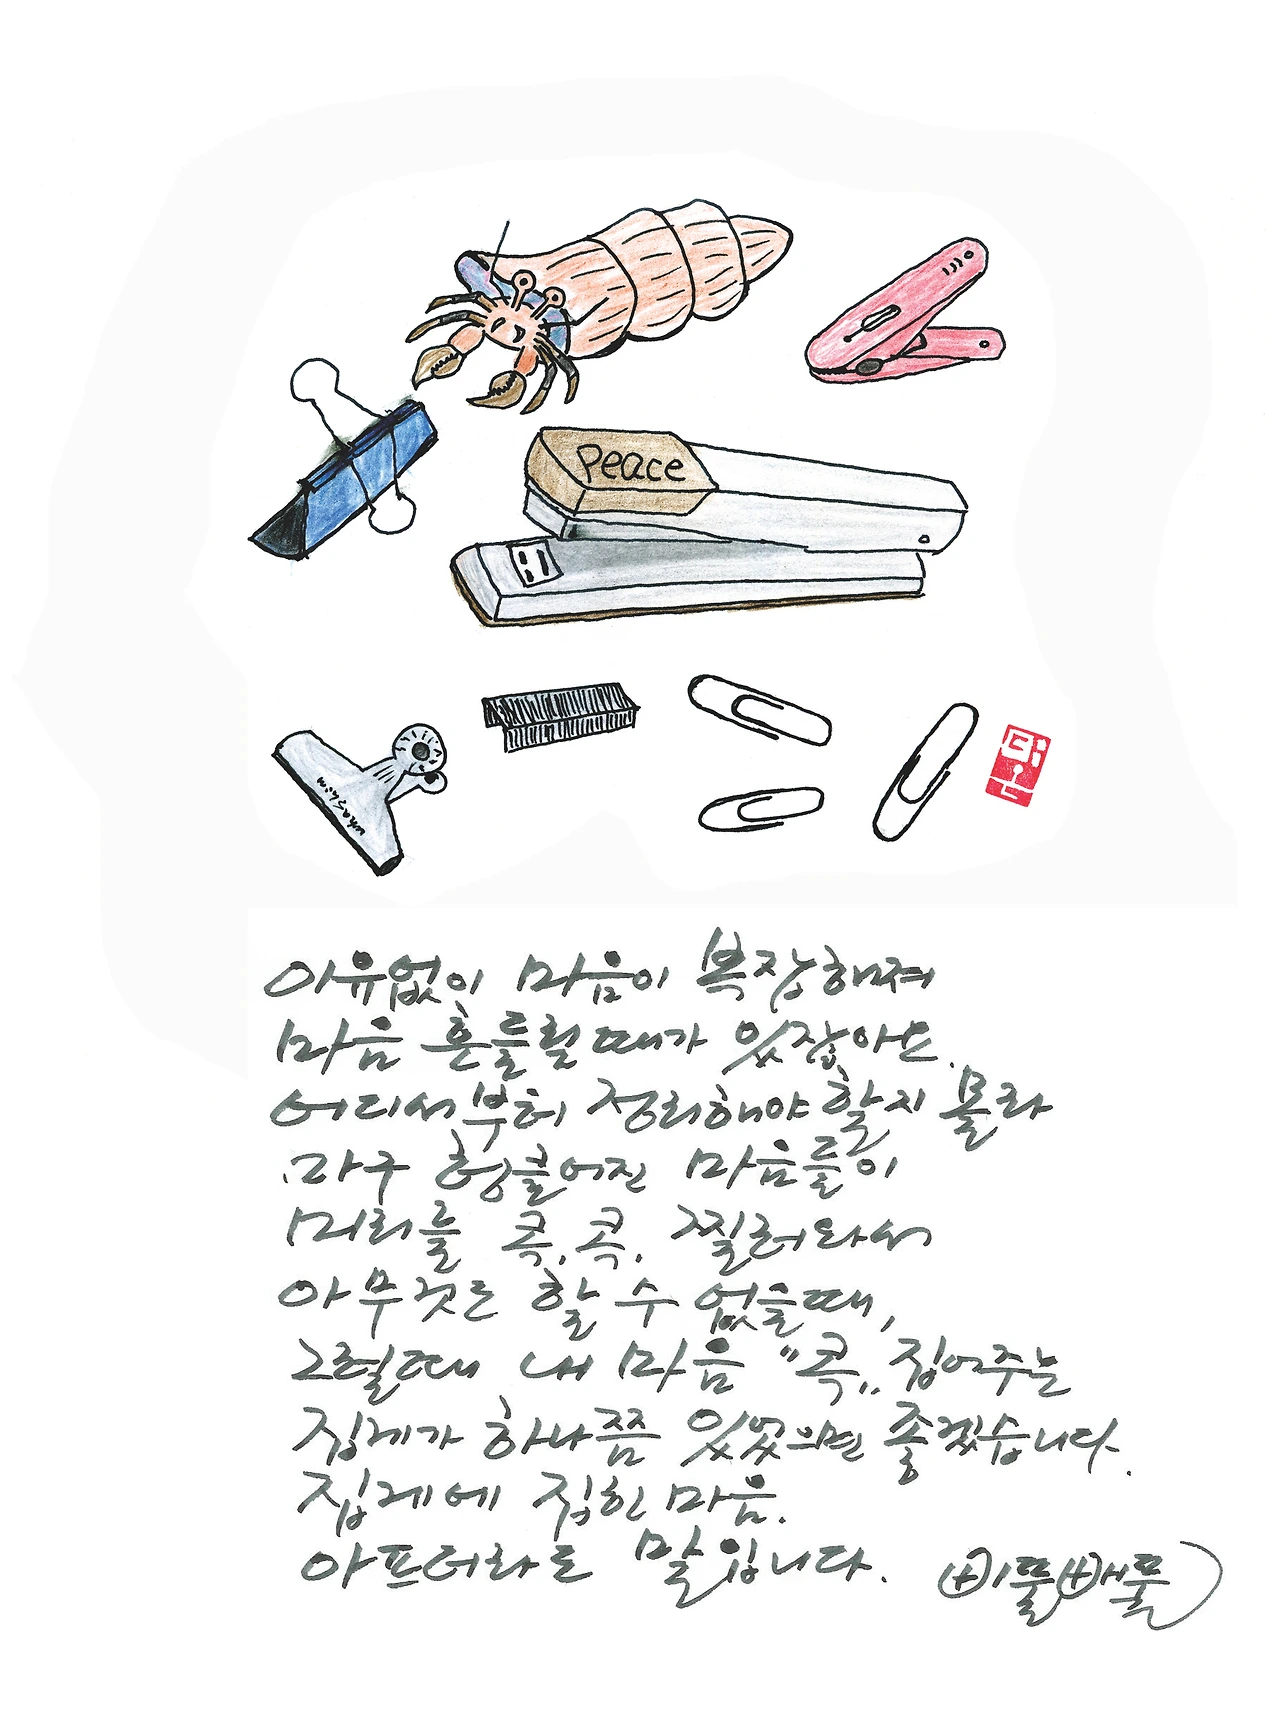 Peace
이유없이 마음이 복잡해져
마음 흔들릴때가 있잖아요.
어디서부터 정리해야할지 몰라
마구 헝불어진 마음들이
머리를 콕, 콕, 찔러와서
아무것도 할 수 없을때,
그럴때 내 마음 "콕,, 집어주는
집게가 하나쯤 있었으면 좋겠습니다.
집게에 집힌 마음.
아프더라도 말입니다. 삐뚤빼뚤